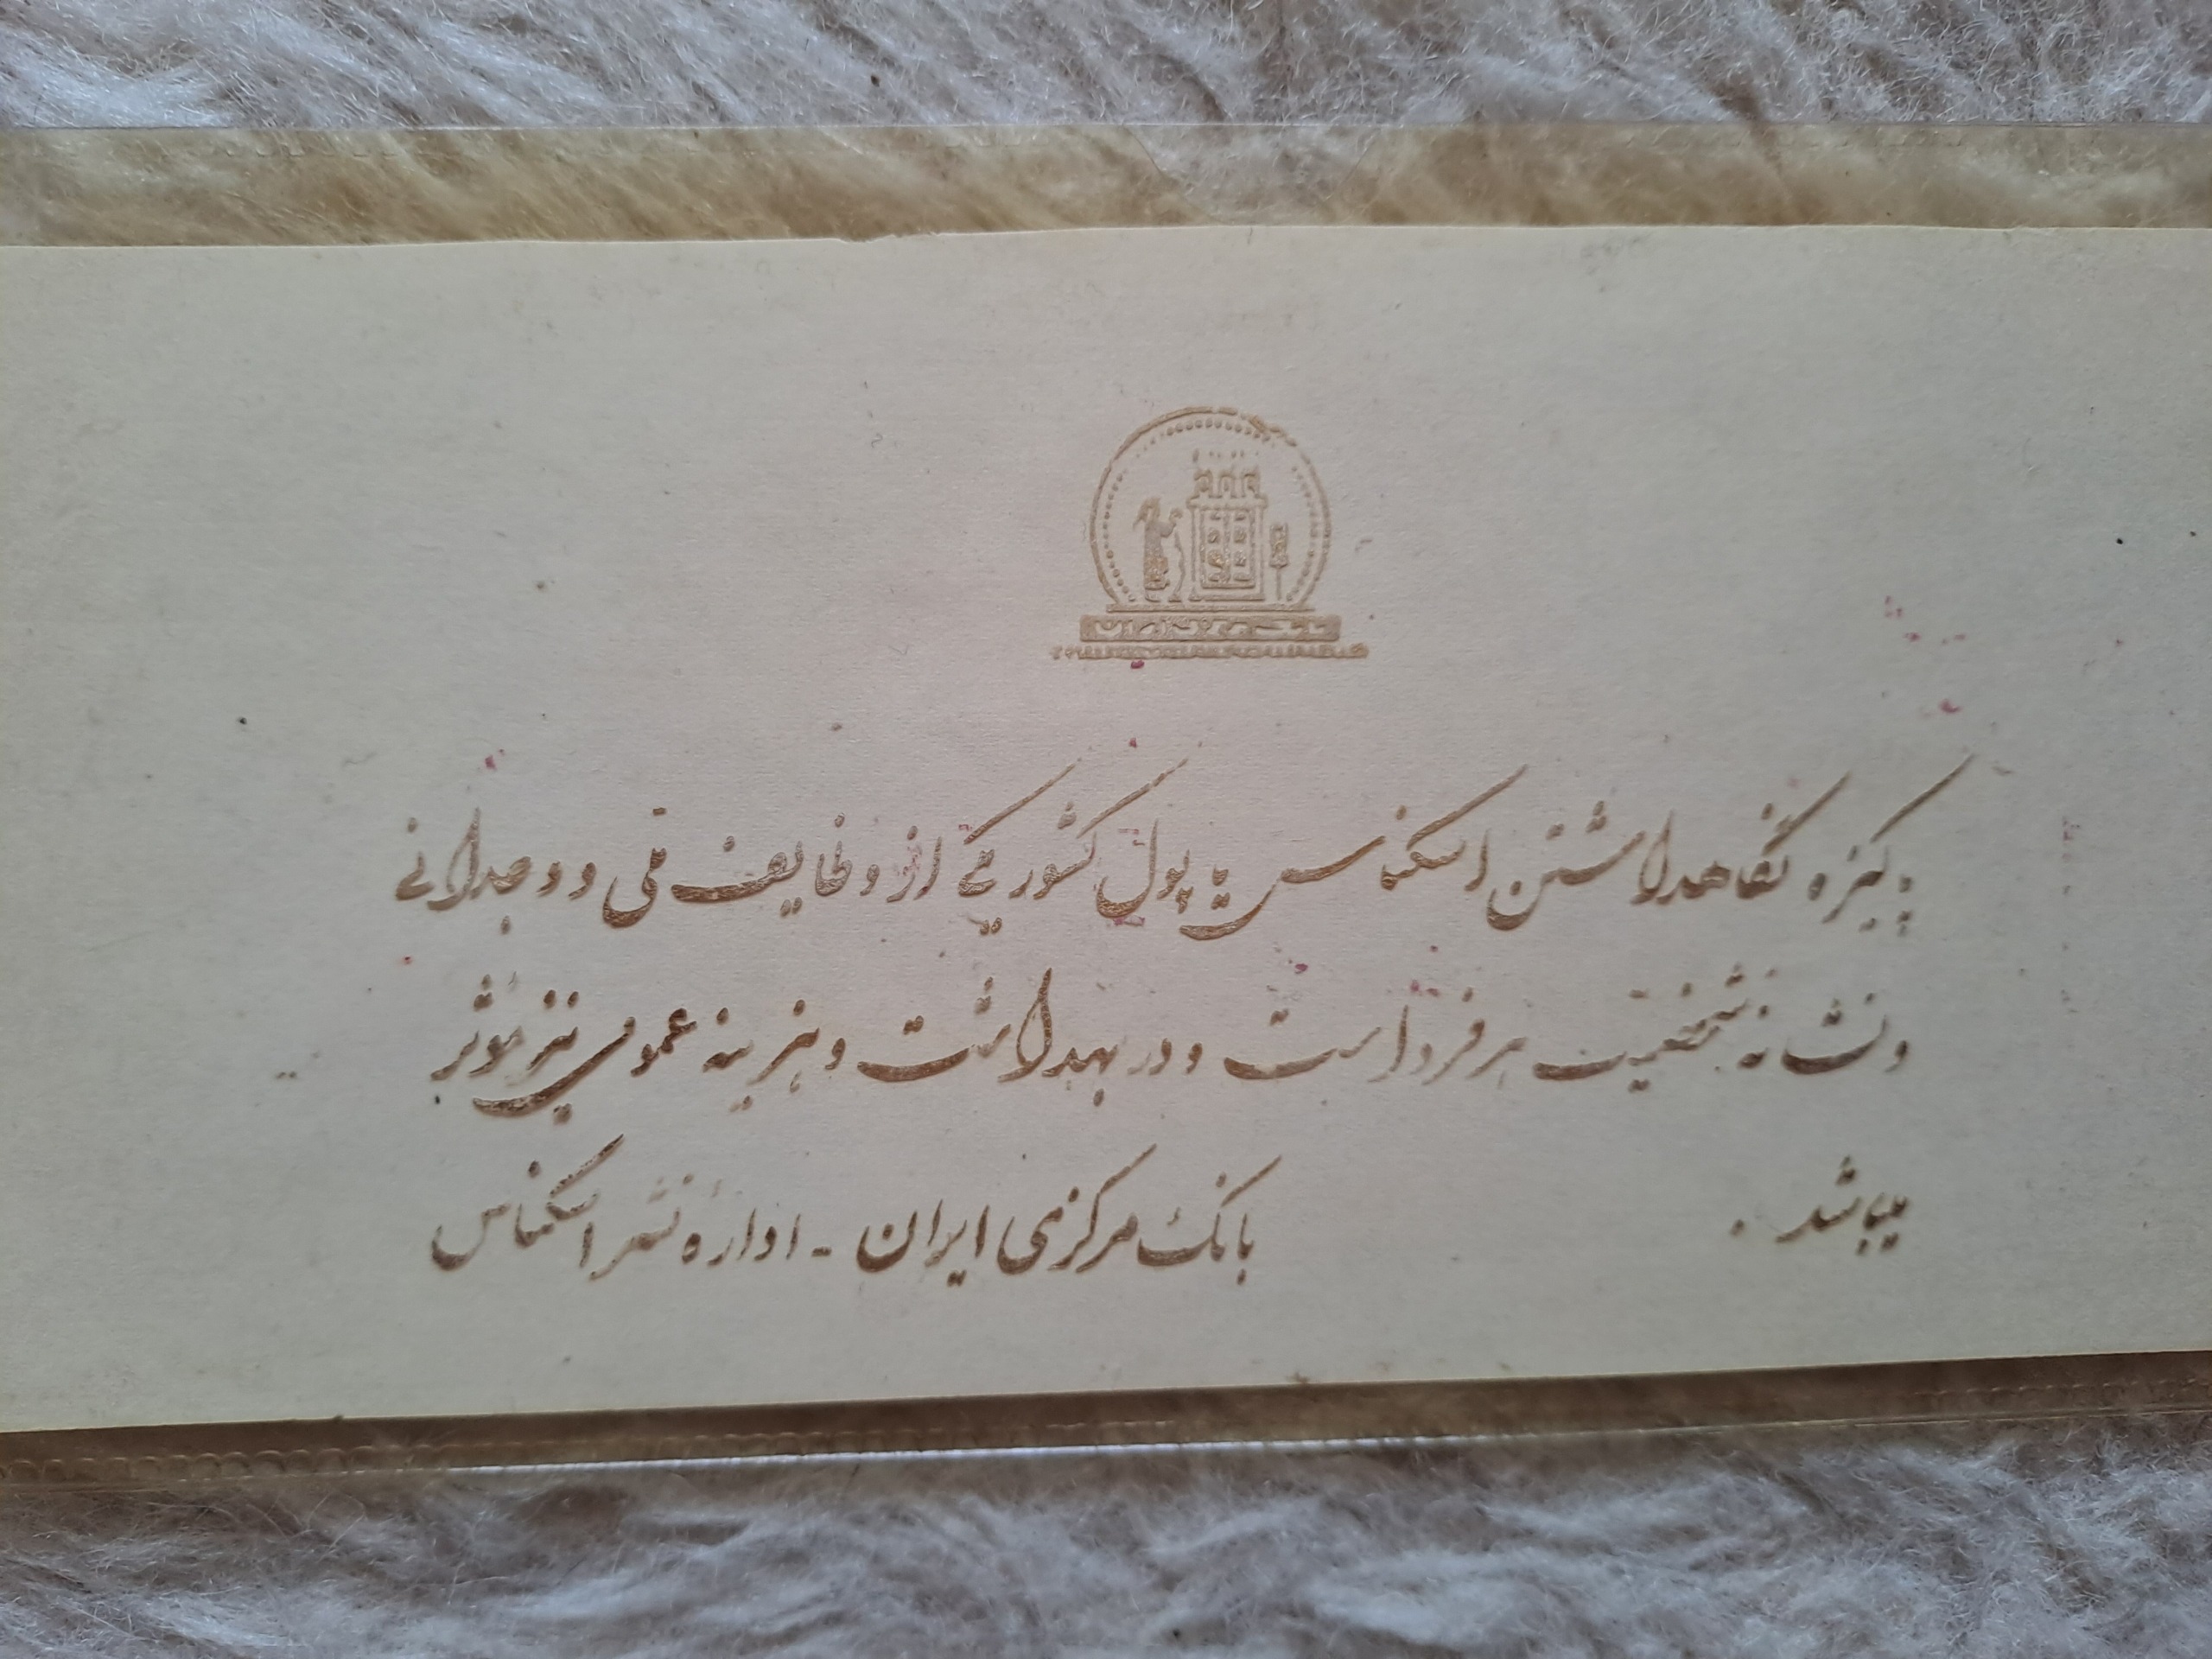 پاکیزه نگاهداشتن اسکناس یا پول کشور یکی از وظایف ملی و وجدانی
و نشانه شخصیت هر فرد است و در بهداشت و هزینه عمومی نیز مؤثر
میباشد .
بانک مرکزی ایران - ادارهٔ نشر اسکناس